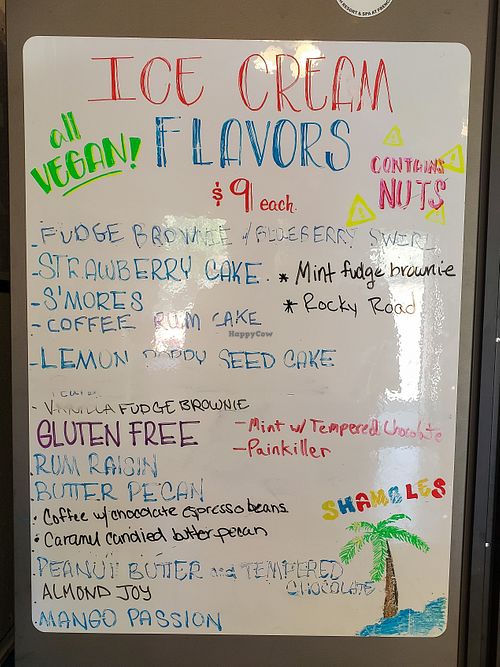 ICE CREAM
all VEGAN!
FLAVORS
$9 each.
CONTAINS
NUTS
-FUDGE BROWNIE w/ BLUEBERRY SWIRL
-STRAWBERRY CAKE.
* Mint fudge brownie
-S'MORES
* Rocky Road
-COFFEE RUM CAKE
HappyCow
-LEMON POPPY SEED CAKE
· VANILLA FUDGE BROWNIE
GLUTEN FREE
-Mint w/ Tempered Chocolate
-Painkiller
RUM RAISIN
BUTTER PECAN
SHAMBLES
· Coffee w/chocolate espresso beans
· Caramel candied butter pecan
PEANUT BUTTER and TEMPERED
CHOCOLATE
ALMOND JOY
MANGO PASSION